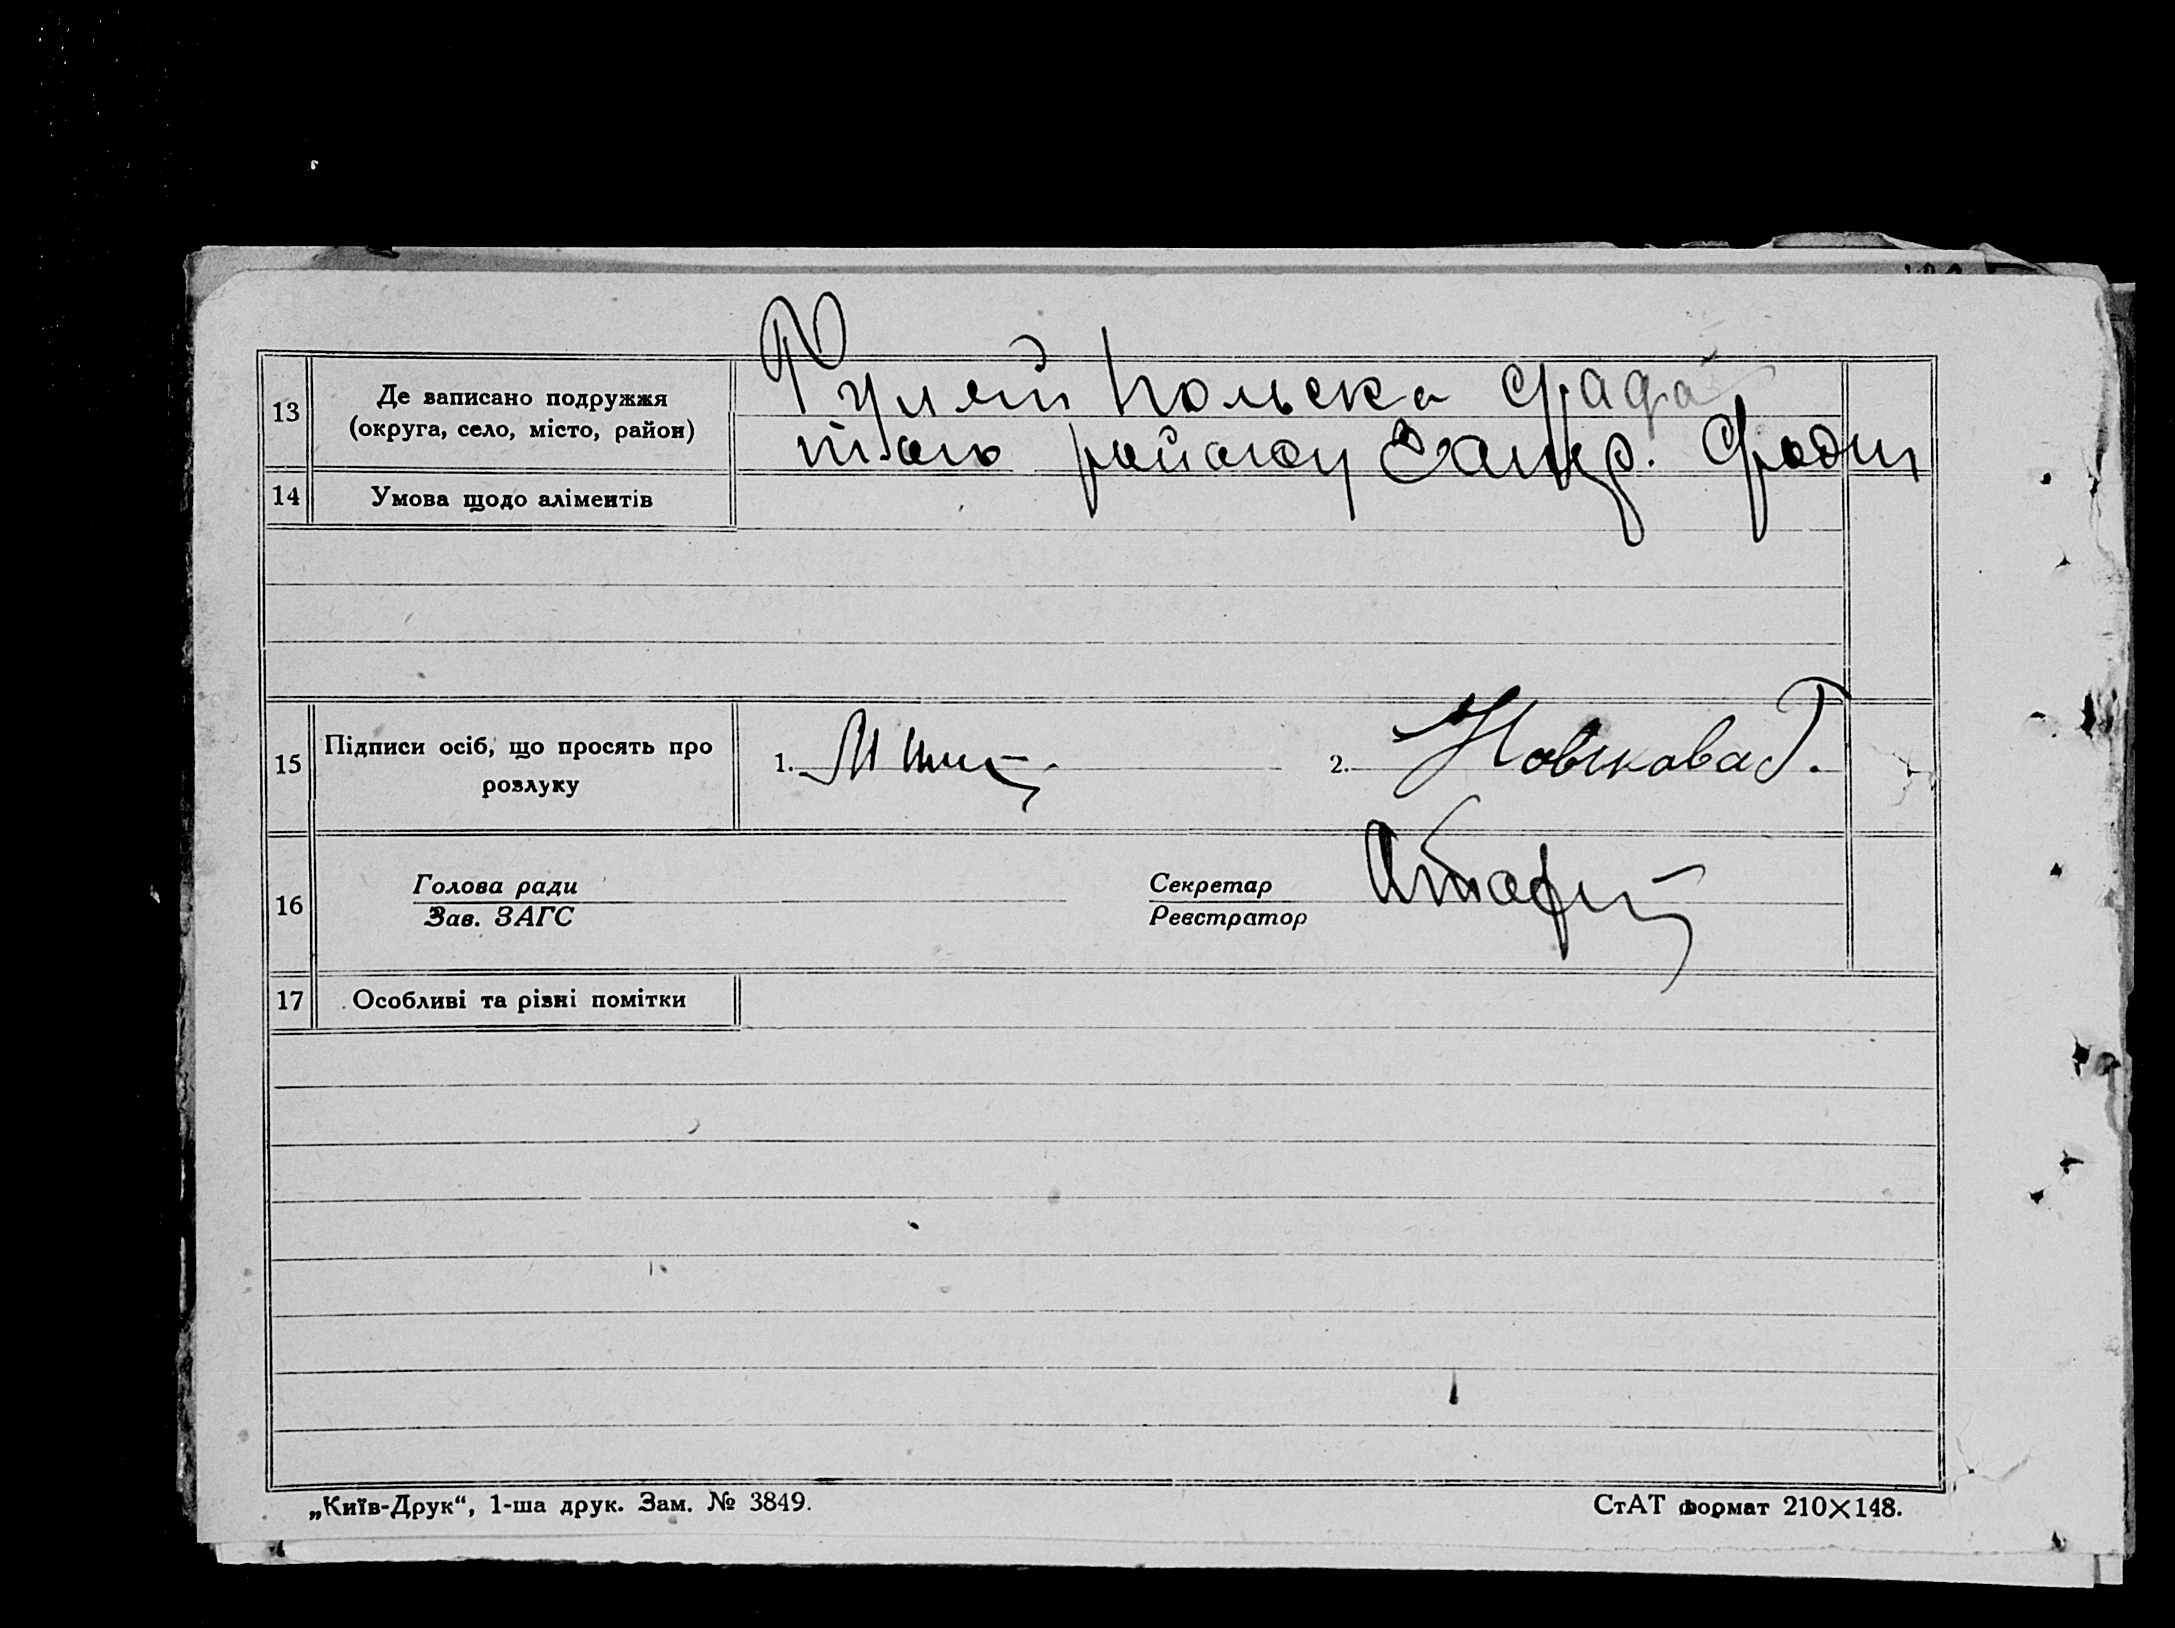 13 Де записано подружжя Гуляй Польска Срада
(округа, село, місто, район) того району Запор.
14 Умова щодо аліментів
15 Підписи осіб, що просять про розлуку 1. 2. Новикова Г.
16 Голова ради Секретар
Зав. ЗАГС Реєстратор
17 Особливі та різні помітки
„Київ-Друк“, 1-ша друк. Зам. № 3849. СтАТ формат 210×148.